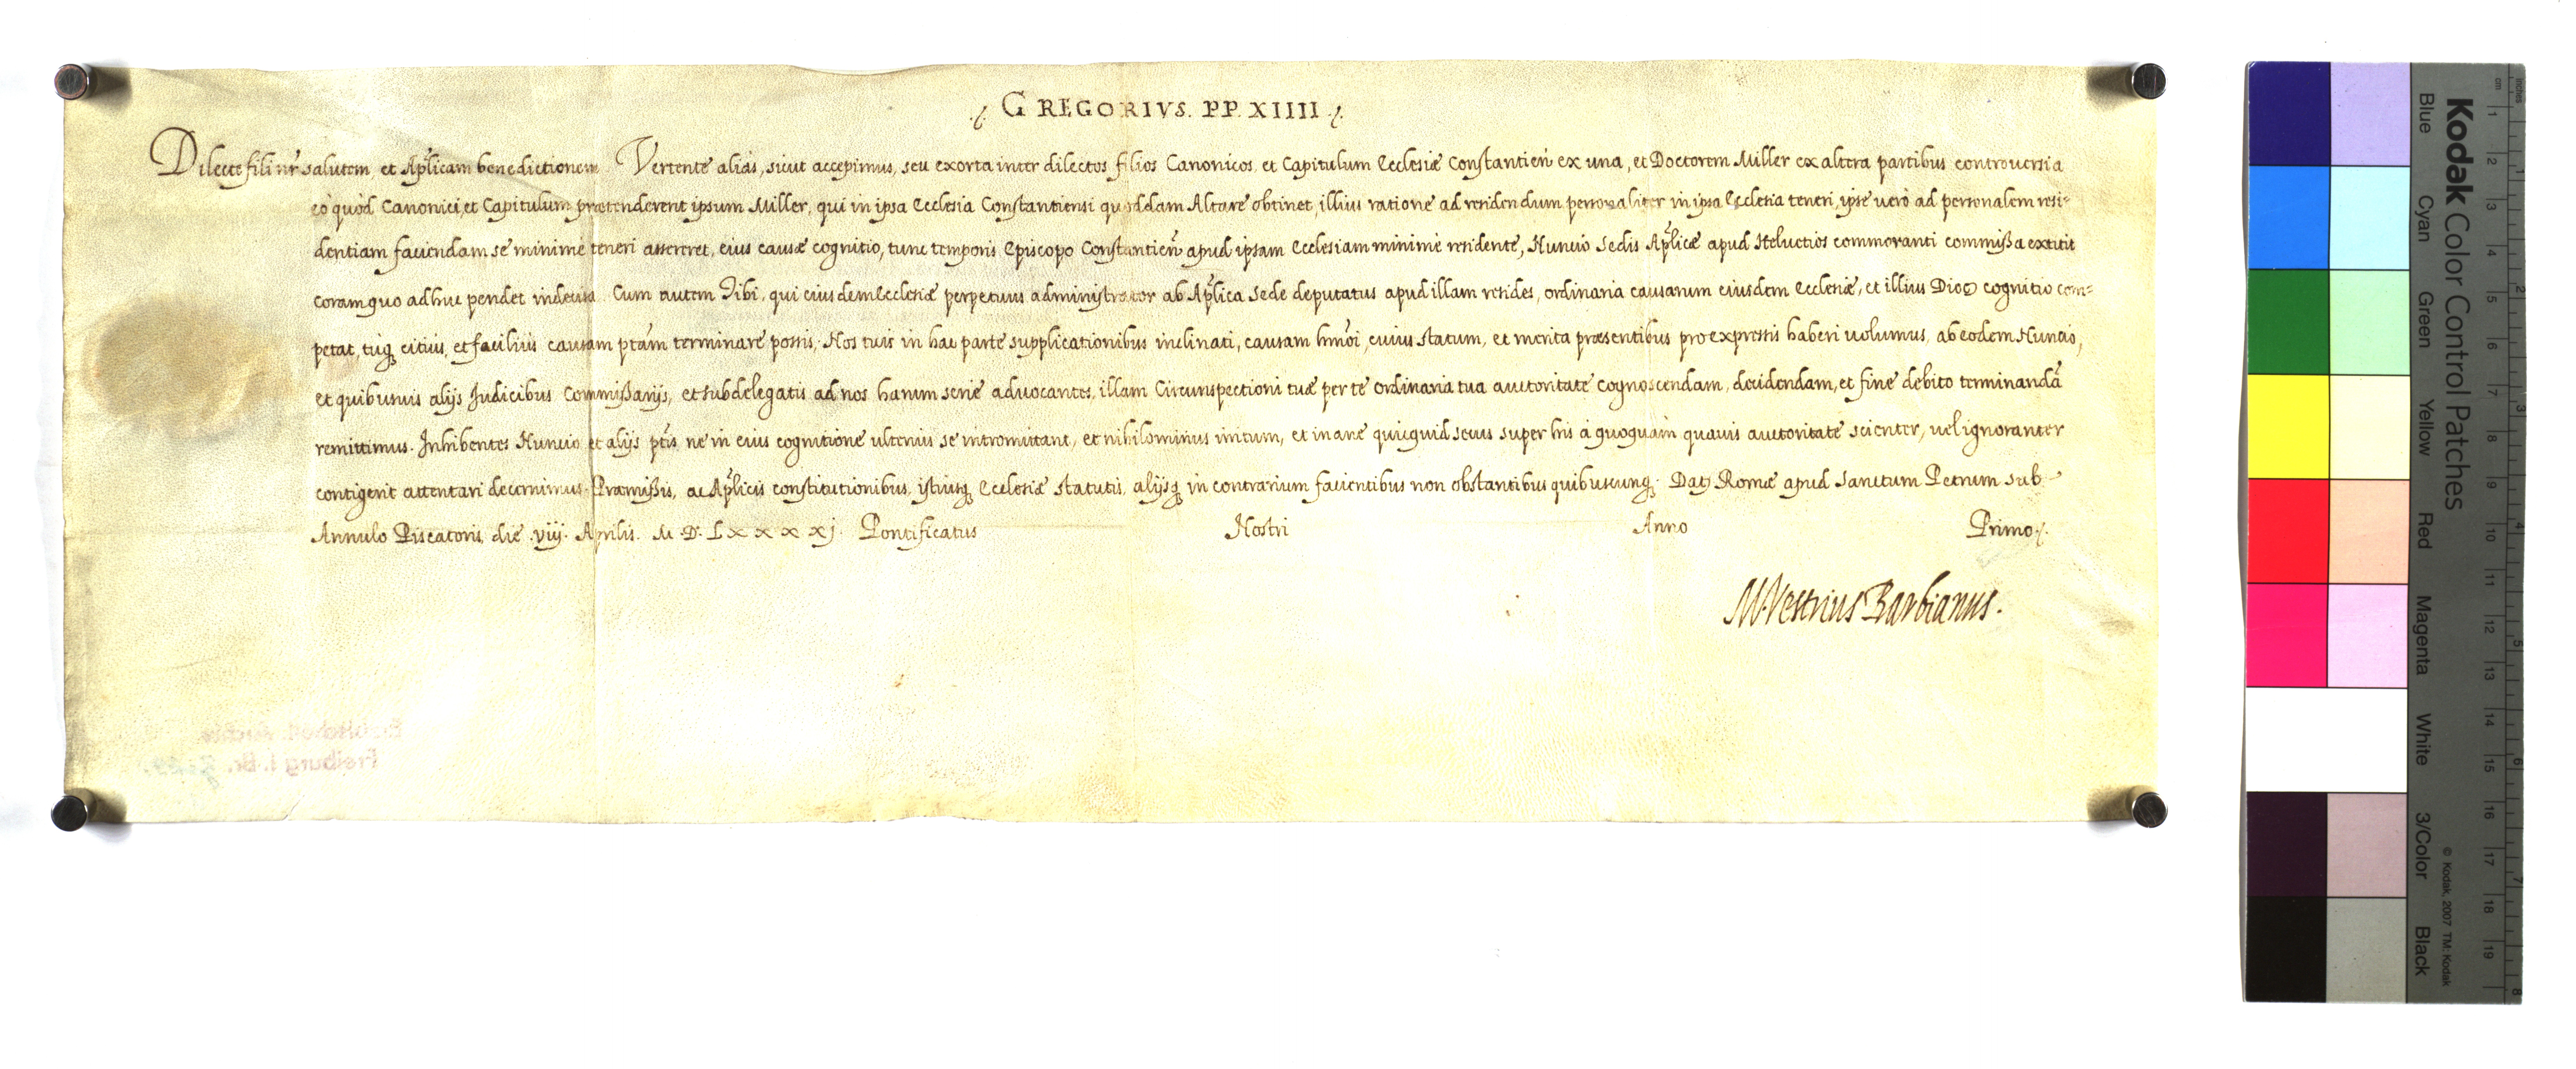 ./. GREGORIVS. PP. XIIII ./.
Dilecte fili nr̃ salutem, et Apl̃icam benedictionem. Vertente alias, sicut accepimus, seu exorta inter dilectos filios Canonicos, et Capitulum Ecclesiæ Constantien̄ ex una, et Doctorem Miller ex altera partibus controuersia
eò quòd Canonici, et Capitulum prætenderent ipsum Miller, qui in ipsa Ecclesia Constantiensi quoddam Altare obtinet, illius ratione ad residendum personaliter in ipsa Ecclesia teneri, ipse uerò ad personalem resi-
dentiam faciendam se minimè teneri assereret, eius causæ cognitio, tunc temporis Episcopo Constantien̄ apud ipsam Ecclesiam minimè residente, Nuncio Sedis Apl̃icæ apud Heluetios commoranti commißa extitit
coram quo adhuc pendet indecisa. Cum autem Tibi, qui eiusdem Ecclesiæ perpetuus administrator ab Apl̃ica Sede deputatus apud illam resides, ordinaria causarum eiusdem Ecclesiæ, et illius Dioc̄ cognitio com-
petat, tuq; citius, et facilius causam ptãm terminare possis; Nos tuis in hac parte supplicationibus inclinati, causam hmõi, cuius statum, et merita præsentibus pro expressis haberi uolumus, ab eodem Nuncio,
et quibusuis alijs Judicibus Commißarijs, et subdelegatis ad nos harum serie aduocantes, illam Circunspectioni tuæ per te ordinaria tua auctoritate cognoscendam, decidendam, et fine debito terminandā
remittimus. Inhibentes Nuncio et alijs ptĩs ne in eius cognitione ulterius se intromittant, et nihilominus irritum, et inane quicquid secus super his à quoquam quauis auctoritate scienter, uel ignoranter
contigerit attentari decernimus. Præmißis, ac Apl̃icis constitutionibus, istiusq; Ecclesiæ statutis, alijsq; in contrarium facientibus non obstantibus quibuscunq;. Dat̄ Romæ apud Sanctum Petrum sub
Annulo Piscatoris, die .viij. Aprilis. M. D. Lxxxxj. Pontificatus Nostri Anno Primo ./.
M. Vestrius Barbianus.
Erzbischöfl. Archiv
Freiburg i. Br.
Kodak Color Control Patches
Blue Cyan Green Yellow Red Magenta White 3/Color Black
© Kodak, 2007 TM: Kodak
cm 1 2 3 4 5 6 7 8 9 10 11 12 13 14 15 16 17 18 19
inches 1 2 3 4 5 6 7 8